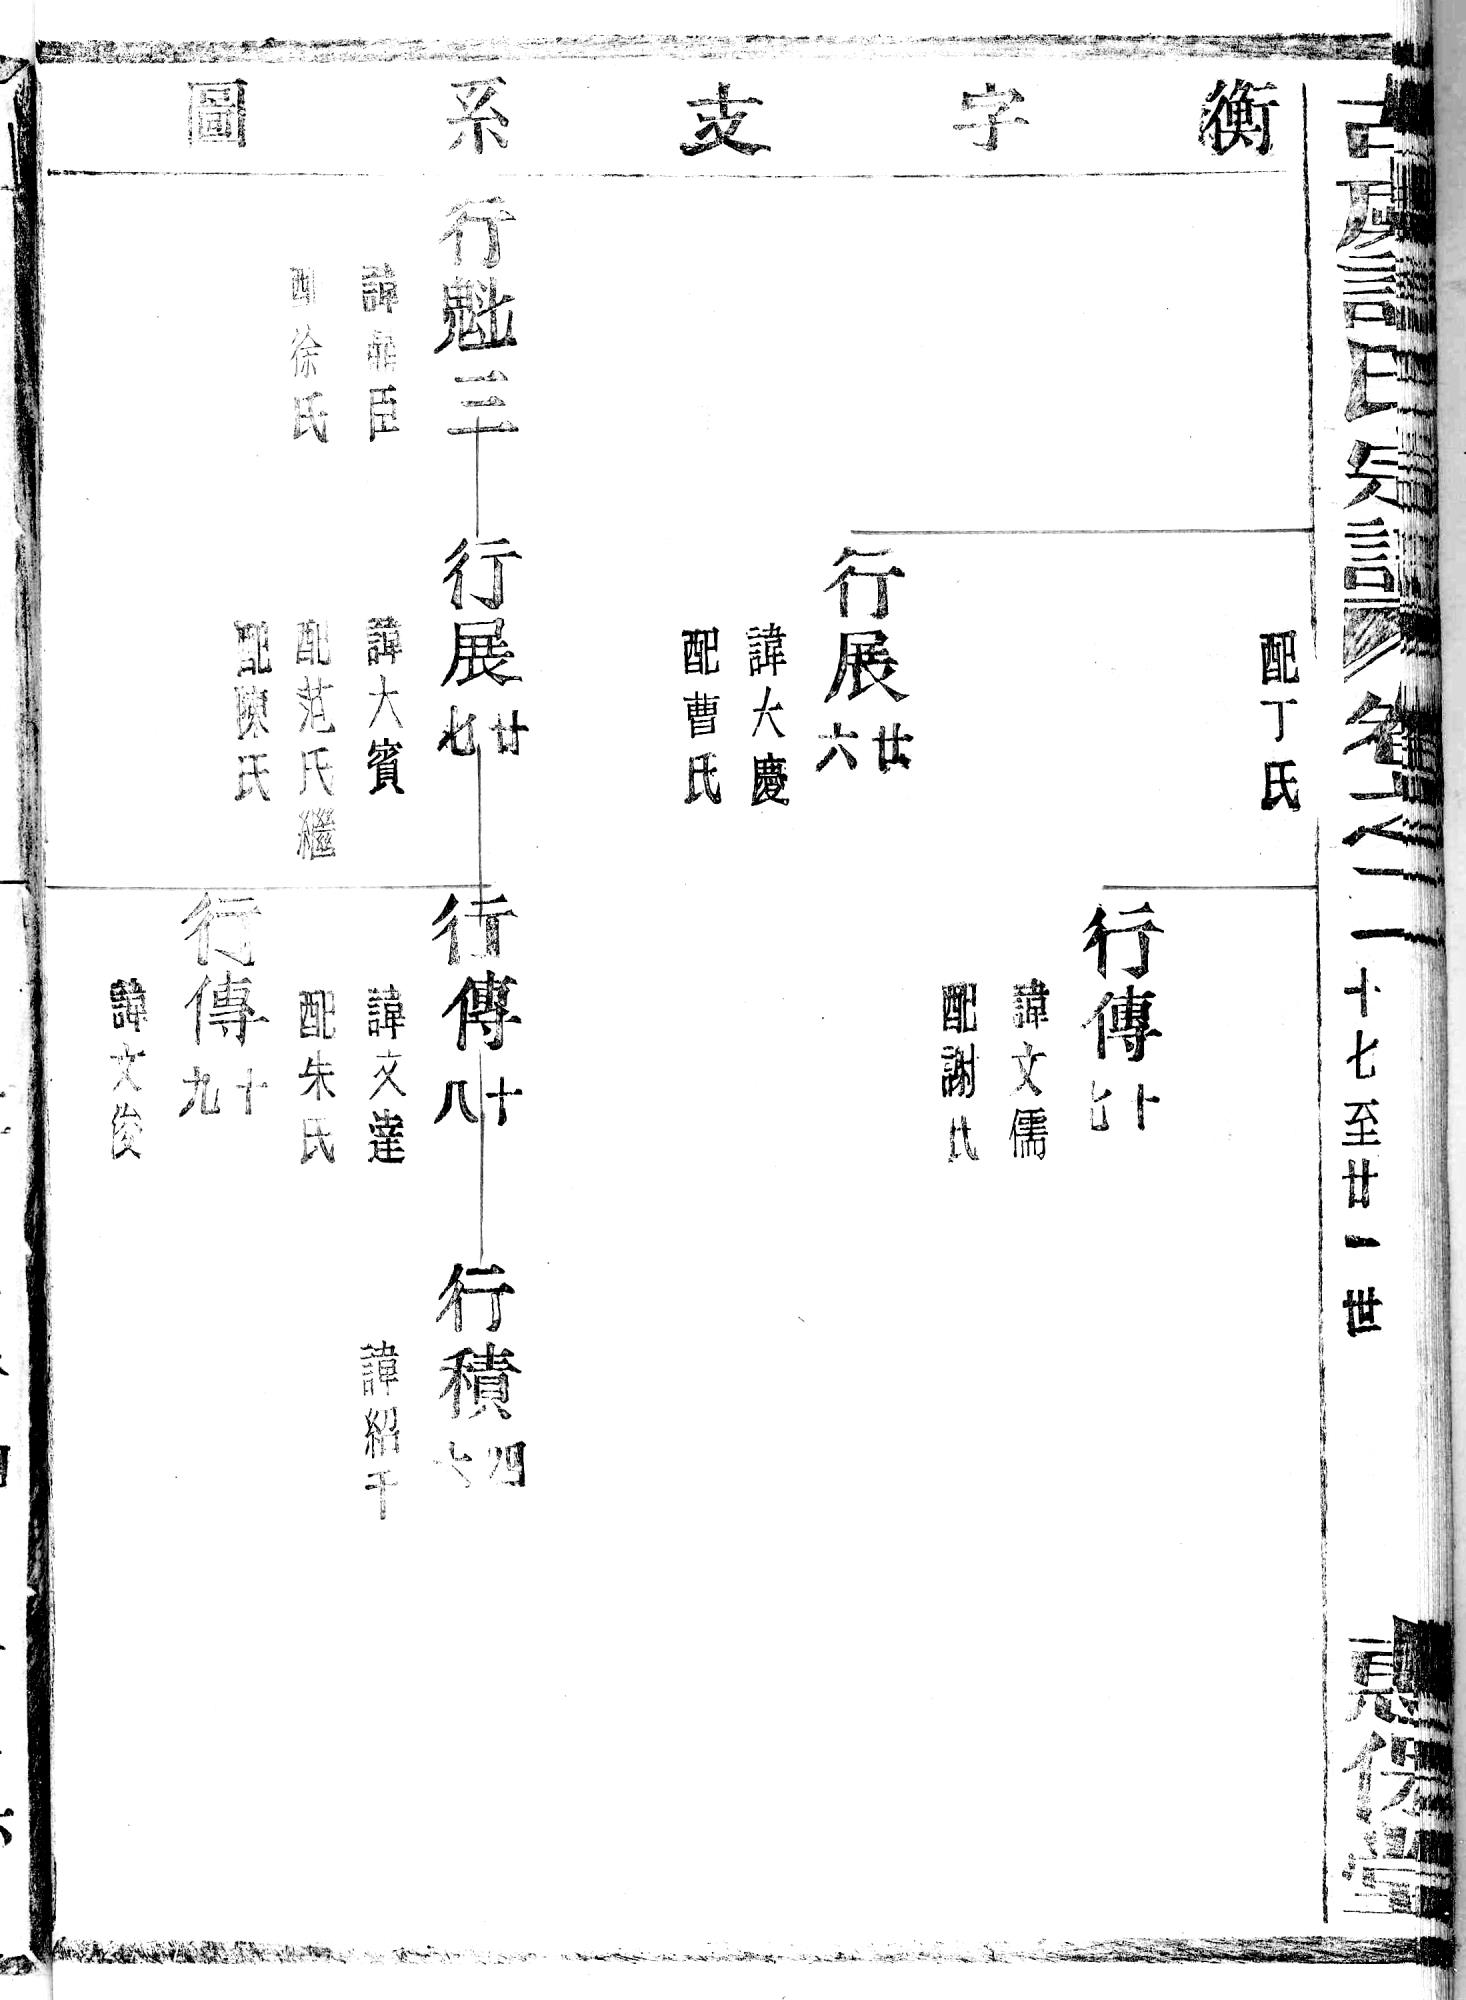 衡字支系圖
宗譜
卷之二
十七至廿一世
惠保堂
配丁氏
行傳十七
諱文儒
配謝氏
行展廿六
諱大慶
配曹氏
行魁三
諱彝臣
配徐氏
行展廿七
諱大賓
配范氏繼
配陳氏
行傳十八
諱文達
配朱氏
行積四七
諱紹千
行傳十九
諱文俊